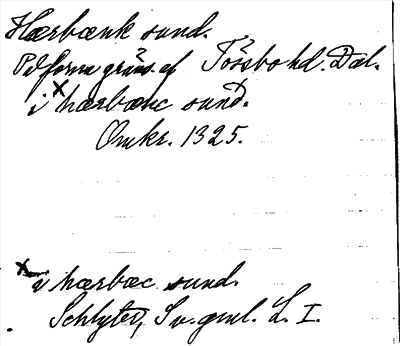 Hærbænk sund.
På forna gräns af Tössbo hd. Dal.
i ˣ hærbænc sund.
Omkr. 1325.
ˣ i hærbæc sund.
Schlyter, Sv. gml. L. I.